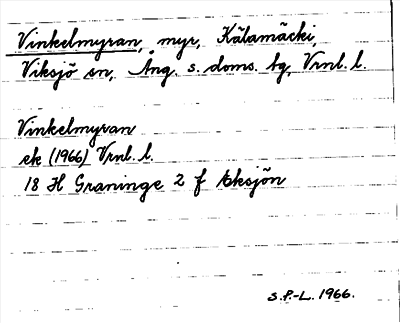 Vinkelmyran, myr, Kälamäcki,
Viksjö sn, Ång. s. doms. bg, Vrnl. l.
Vinkelmyran
ek (1966) Vrnl. l.
18 H Graninge 2 f Eksjön
S.P.-L. 1966.